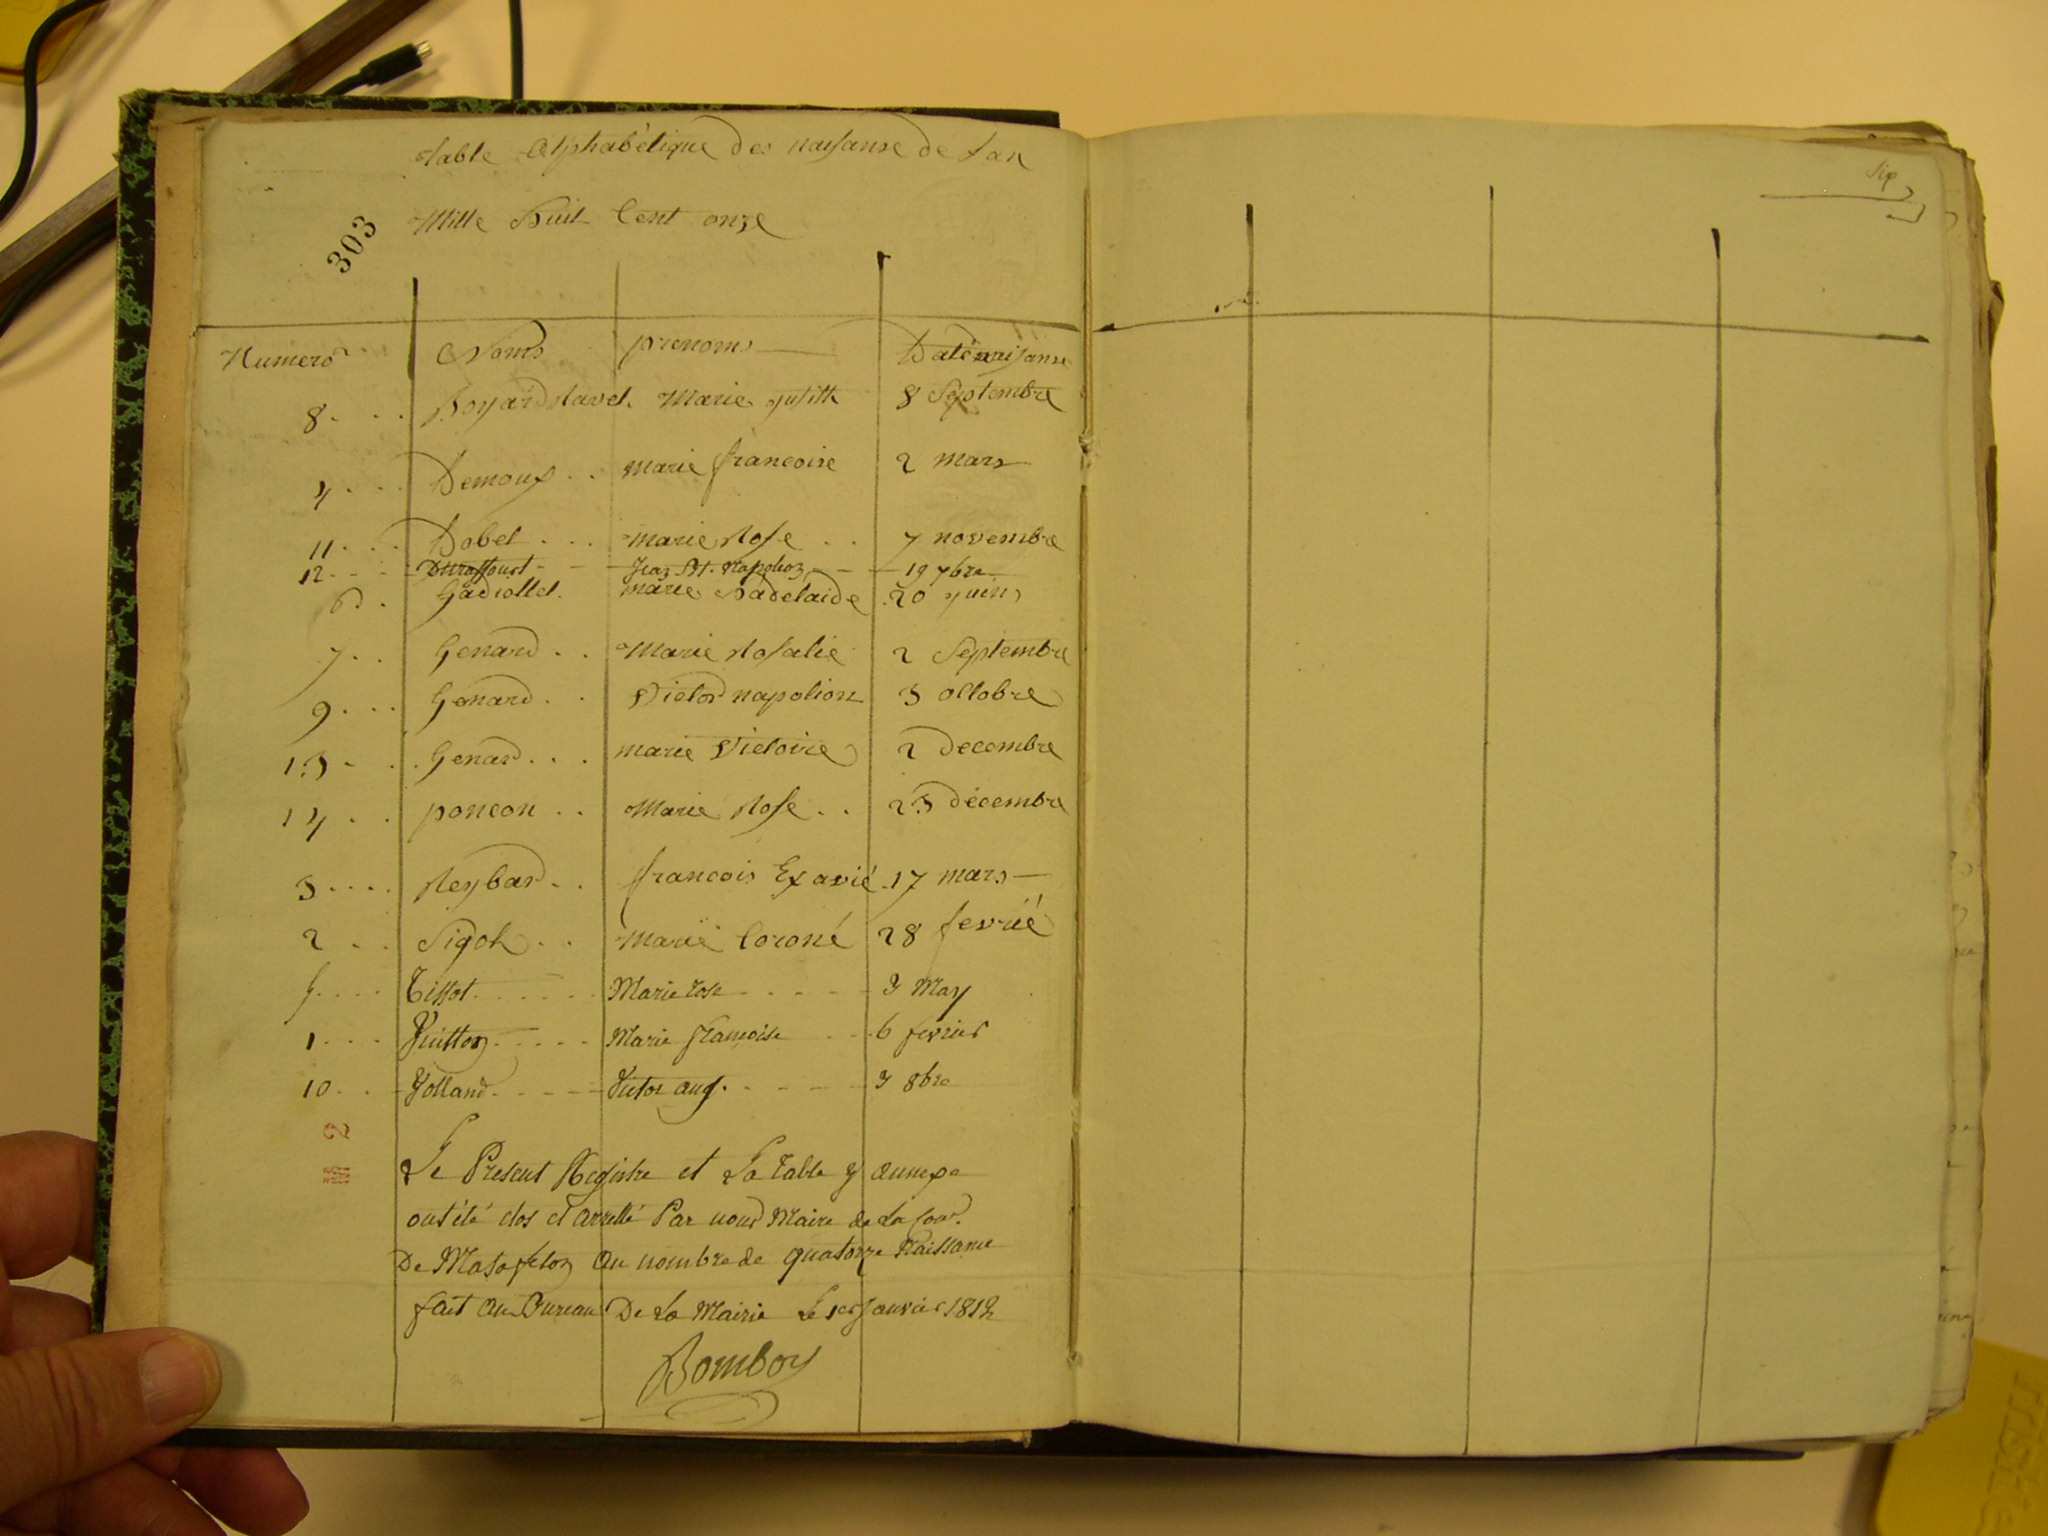 Table Alphabétique des naisanse de Lan
Mille Huit Cent onze
303
Numero Noms prenoms Daté naisanse
8 Boyard Navet Marie judith 8 Septembre
4 Demoux marie francoise 2 mars
11 Dobet marie Rose 7 novembre
12 Duraffourt Jean Bt. Napoleon 19 9bre
6 Gadiollet marie Hadelaide 20 juin
7 Genard Marie Rosalie 2 Septembre
9 Genard Victor napolion 3 octobre
13 Genard marie Victoire 2 decembre
14 poncon Marie Rose 23 décembre
3 Reybard francois Exavié 17 mars
2 Sigoh Marie Coroné 28 fevrié
5 Tissot Marie rose 3 May
1 Vuitton Marie françoise 6 fevrier
10 Volland Victor aug. 3 8bre
Le Present Registre et La Table y annexe
ont été clos et arretté Par nous Maire de La Com.
De Matafelon Au nombre de quatorze Naissance
fait Au Bureau De La Mairie Le 1er Janvier 1812
Bomboy
Six